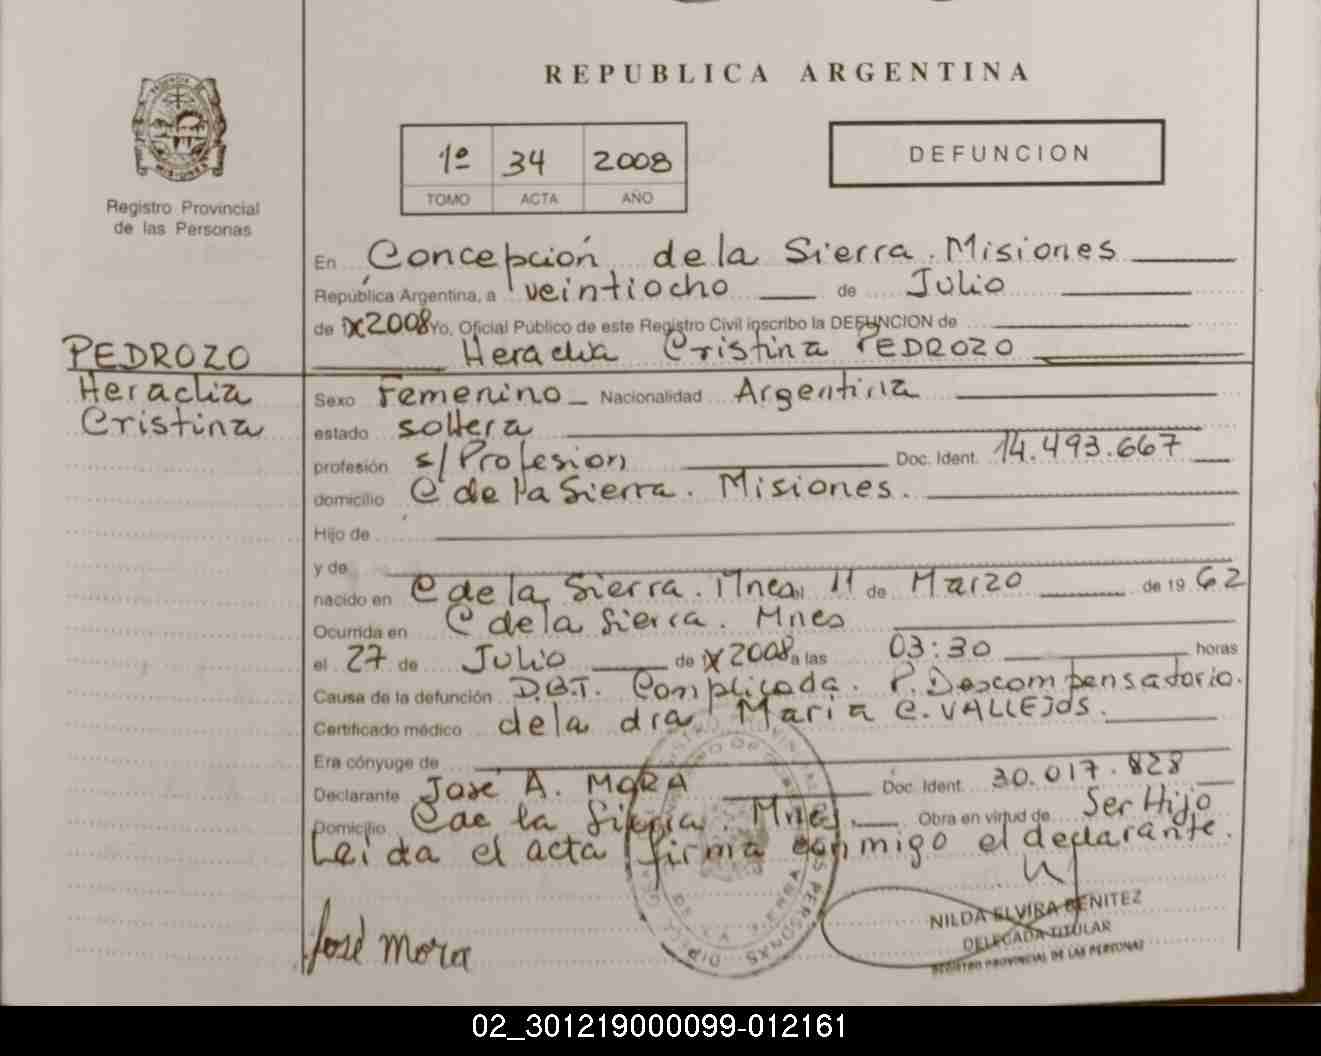 REPUBLICA ARGENTINA
1º 34 2008
TOMO ACTA AÑO
DEFUNCION
Registro Provincial
de las Personas
En Concepción de la Sierra. Misiones
República Argentina, a veintiocho de Julio
de 2008 Yo, Oficial Público de este Registro Civil inscribo la DEFUNCION de
PEDROZO
Heraclia Cristina PEDROZO
Heraclia
Cristina
Sexo Femenino Nacionalidad Argentina
estado soltera
profesión s/Profesion Doc. Ident. 14.493.667
domicilio C de la Sierra. Misiones.
Hijo de
y de
nacido en C de la Sierra. Mnes, 11 de Marzo de 19 62
Ocurrida en C de la Sierra. Mnes
el 27 de Julio de 2008 a las 03:30 horas
Causa de la defunción D.B.T. Complicada. P. Descompensatorio.
Certificado médico de la dra Maria C. VALLEJOS.
Era cónyuge de
Declarante José A. MORA Doc. Ident. 30.017.828
Domicilio C de la Sierra. Mnes. Obra en virtud de Ser Hijo
Leida el acta firma conmigo el declarante.
José Mora
NILDA ELVIRA BENITEZ
DELEGADA TITULAR
REGISTRO PROVINCIAL DE LAS PERSONAS
02_301219000099-012161